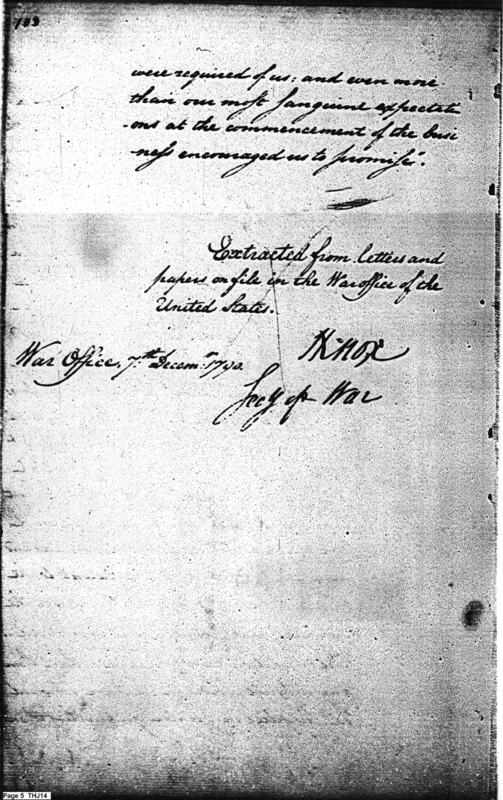 183
were required of us; and even more
than our most sanguine expectati
-ons at the commencement of the busi
ness encouraged us to promise".
Extracted from letters and
papers on file in the War office of the
United States.
War Office, 7th. Decemr. 1790.
HKnox
Secy of War
Page 5 THJ14